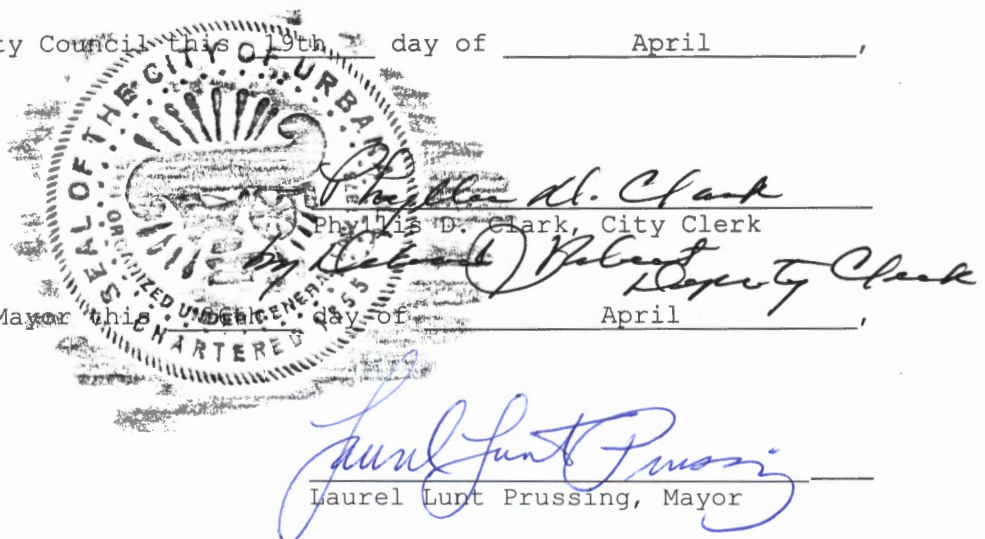 ty Council this 19th day of April,
SEAL OF THE CITY OF URBANA
ORGANIZED UNDER GENERAL
CHARTERED 1855
Phyllis D. Clark
Phyllis D. Clark, City Clerk
by Deputy Clerk
Mayor this day of April,
Laurel Lunt Prussing
Laurel Lunt Prussing, Mayor